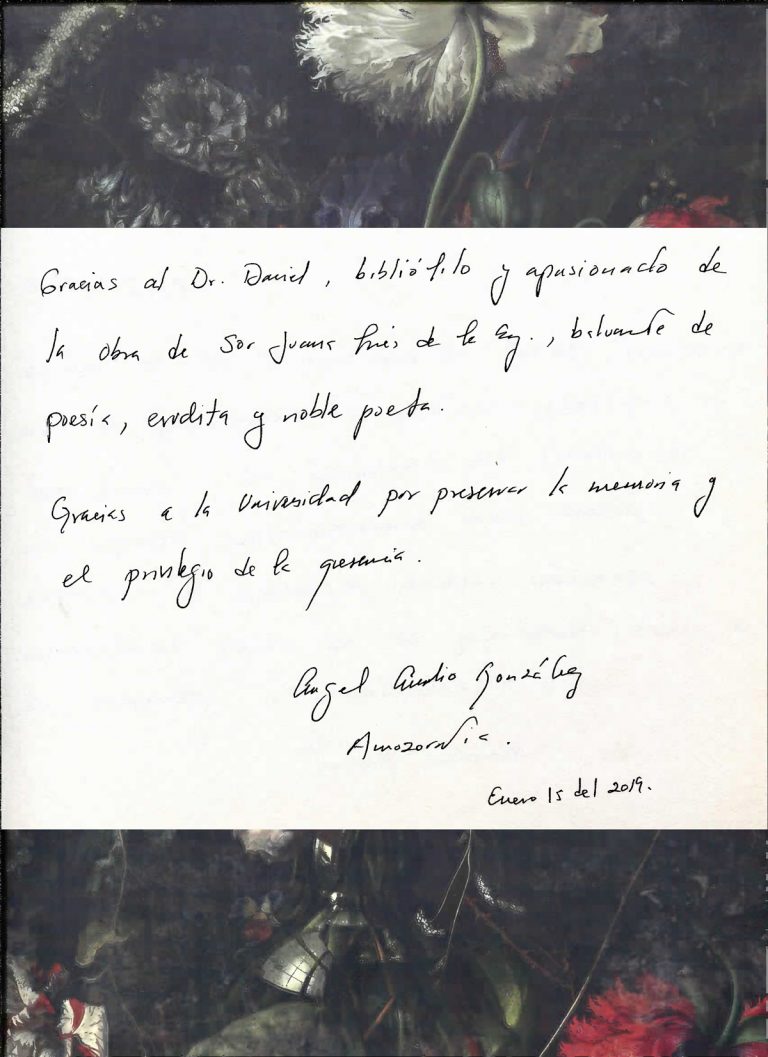 Gracias al Dr. Daniel, bibliófilo y apasionado de
la obra de Sor Juana Inés de la, baluarte de
poesía, erudita y noble poeta.
Gracias a la Universidad por preservar la memoria y
el privilegio de la presencia.
Angel González
Enero 15 del 2019.